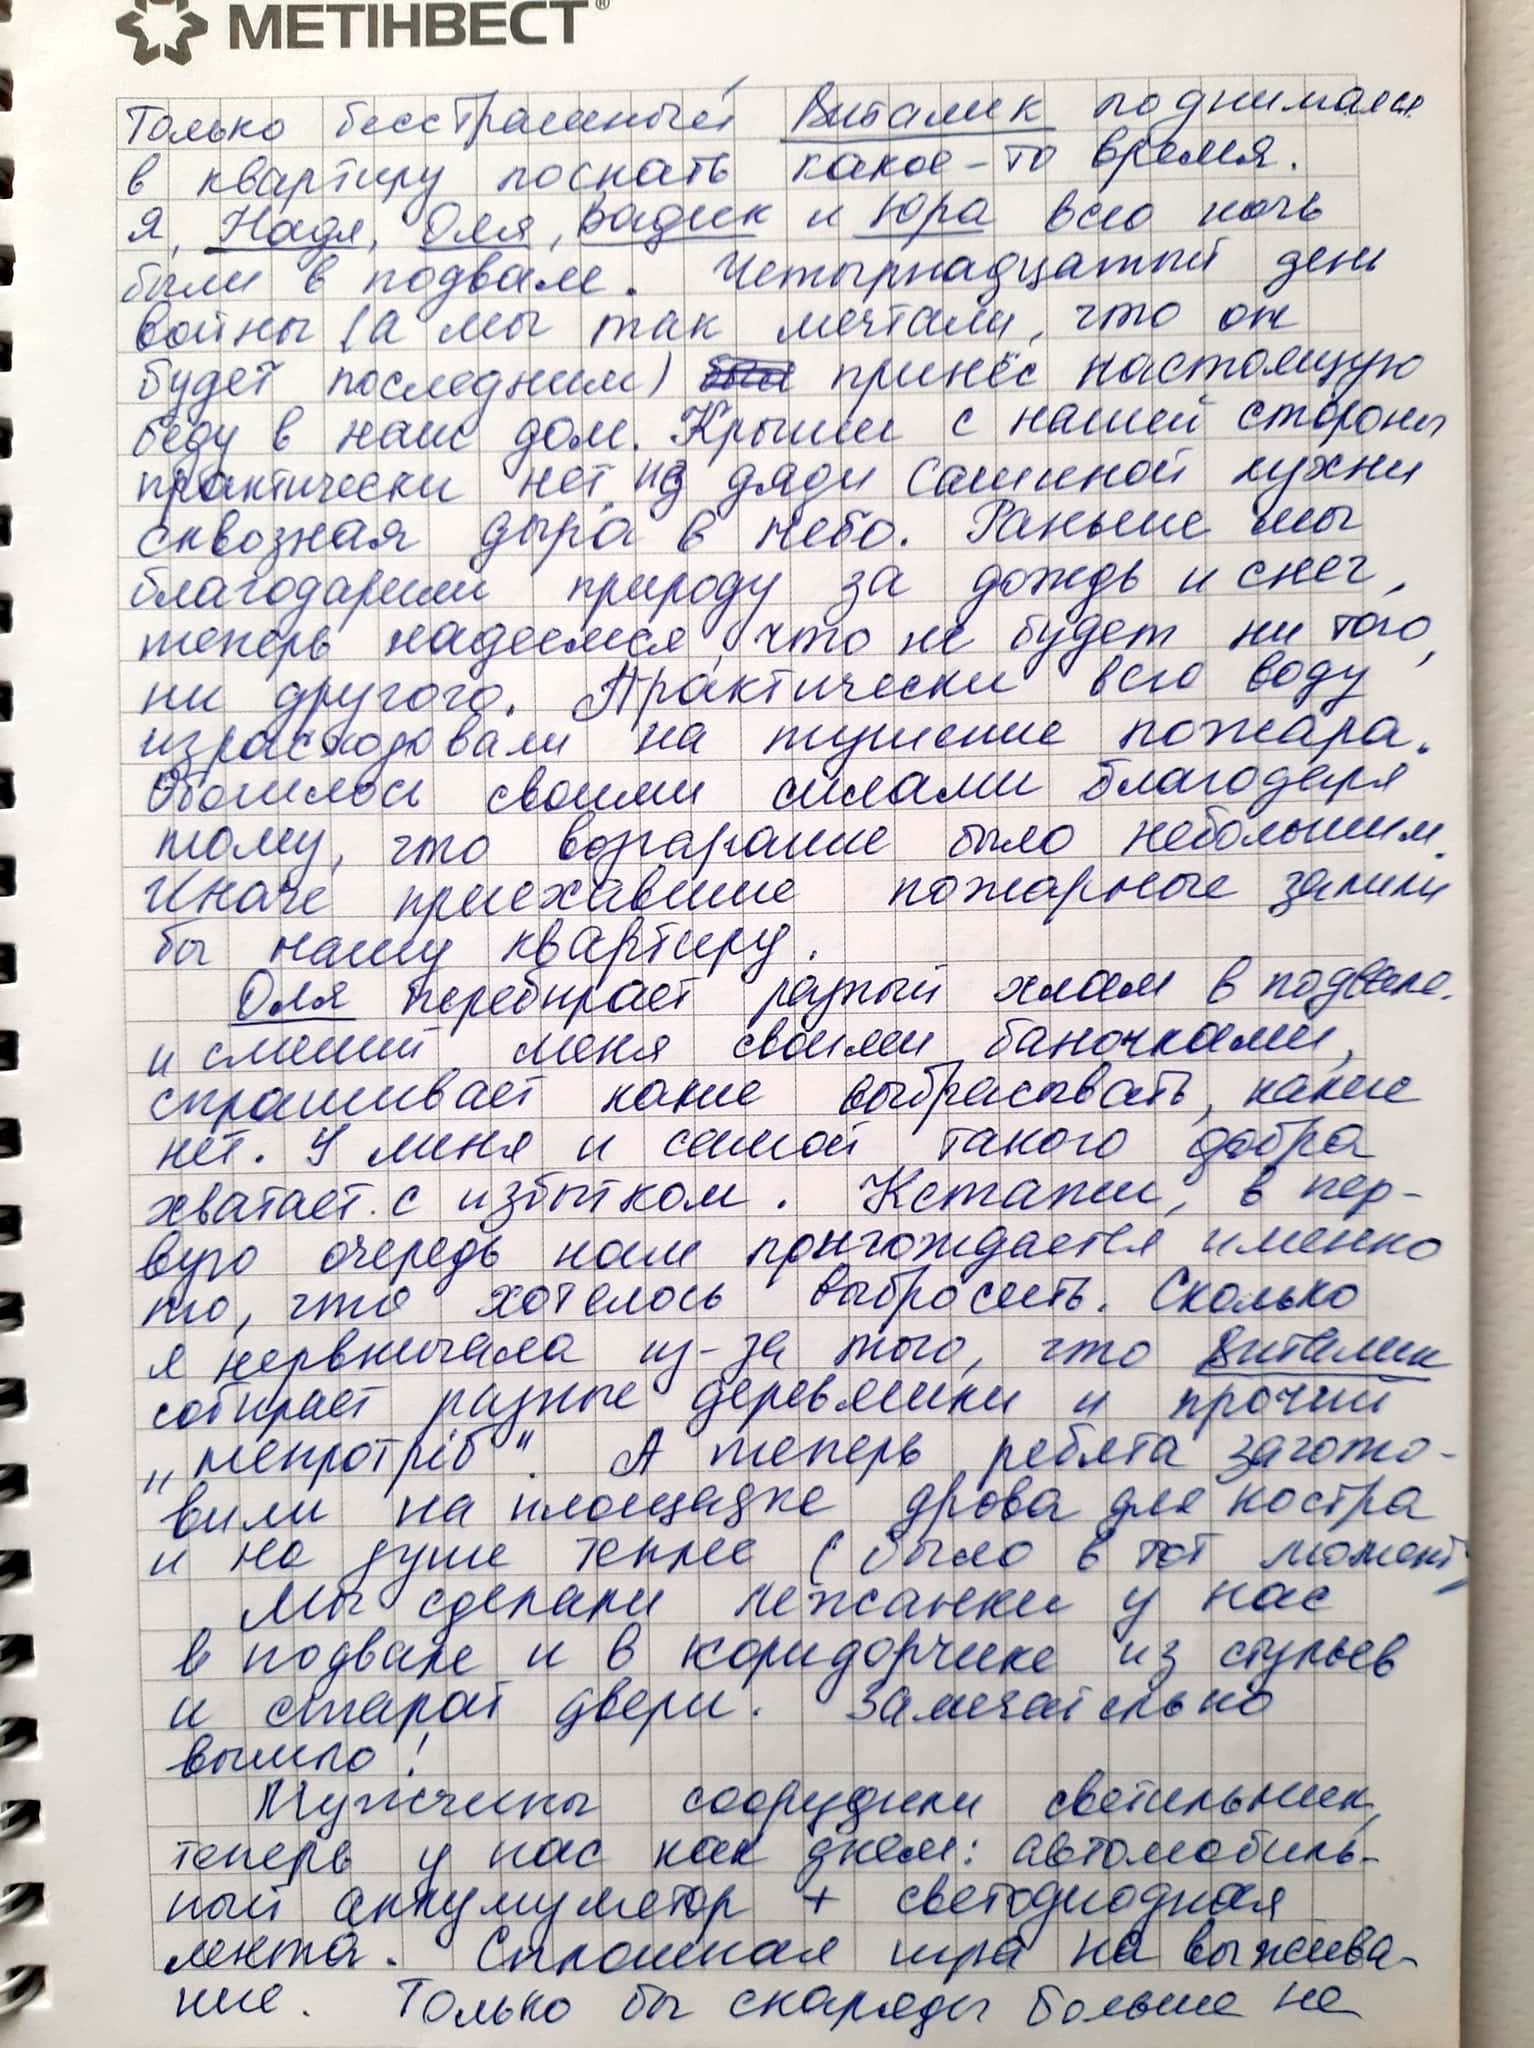 МЕТІНВЕСТ®
Только бесстрашный Виталик поднимался
в квартиру поспать какое-то время.
Я, Надя, Оля, Вадик и Юра всю ночь
были в подвале. Четырнадцатый день
войны (а мы так мечтали, что он
будет последним) принёс настоящую
беду в наш дом. Крыши с нашей стороны
практически нет, из дяди Сашиной кухни
сквозная дыра в небо. Раньше мы
благодарили природу за дождь и снег,
теперь надеемся, что не будет ни того,
ни другого. Практически всю воду
израсходовали на тушение пожара.
Обошлось своими силами благодаря
тому, что возгорание было небольшим.
Иначе приехавшие пожарные залили
бы нашу квартиру.
Оля перебирает разный хлам в подвале
и смешит меня своими баночками,
спрашивает какие выбрасывать, какие
нет. У меня и самой такого добра
хватает с избытком. Кстати, в пер-
вую очередь нам пригождается именно
то, что хотелось выбросить. Сколько
я нервничала из-за того, что Виталик
собирает разные деревяшки и прочий
„непротріб". А теперь ребята загото-
вили на площадке дрова для костра
и на душе теплее (было в тот момент)
Мы сделали лежанки у нас
в подвале и в коридорчике из стульев
и старой двери. Замечательно
вышло!
Мужчины соорудили светильник,
теперь у нас как днем: автомобиль-
ный аккумулятор + светодиодная
лента. Сплошная игра на выжива-
ние. Только бы снаряды больше не